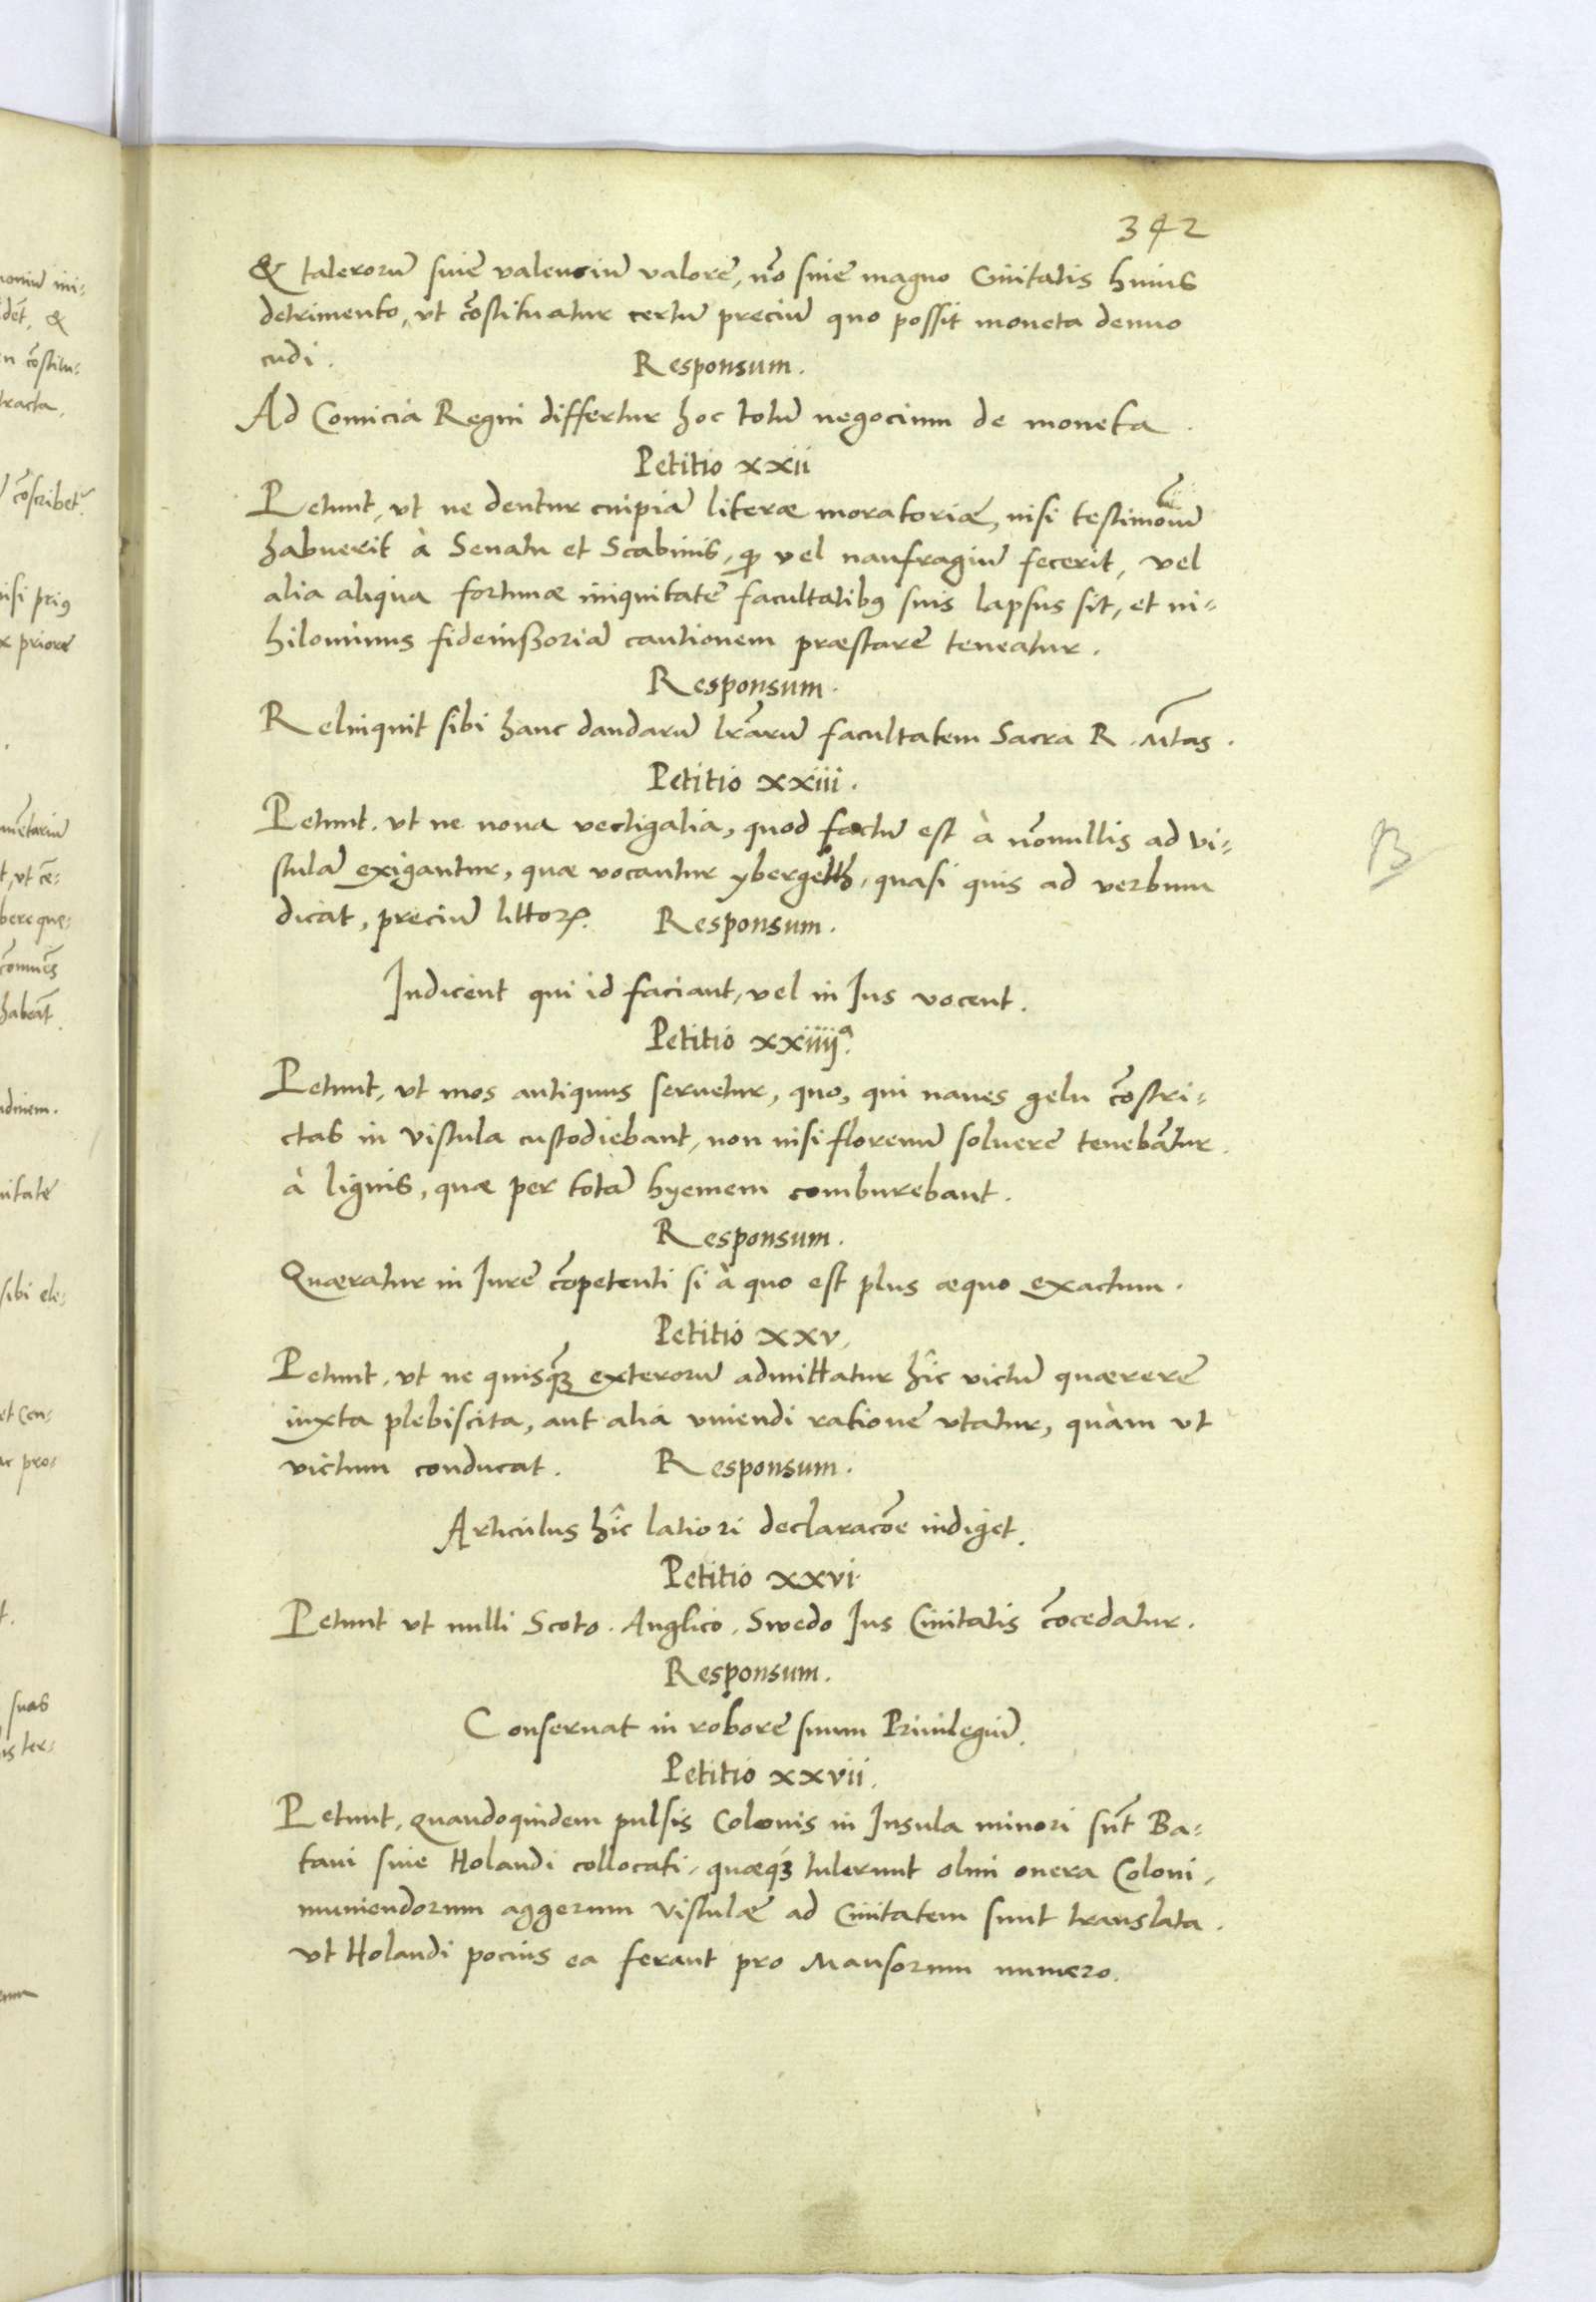 342
& talerorū siue valensiū valorē, nō sine magno Ciuitatis huius
detrimento, vt cōstituatur certū preciū quo possit moneta denuo
cudi. Responsum.
Ad Comicia Regni differtur hoc totū negocium de moneta.
Petitio xxii
Petunt, vt ne dentur cuipiā literæ moratoriæ, nisi testimoniū
habuerit à Senatu et Scabinis, ꝙ vel naufragiū fecerit, vel
alia aliqua fortunæ iniquitate facultatibꝰ suis lapsus sit, et ni-
hilominus fideiussoriā cautionem præstare teneatur.
Responsum.
Relinquit sibi hanc dandarū lr̄arū facultatem Sacra R. Mtas.
Petitio xxiii.
Petunt, vt ne noua vectigalia, quod factū est à nōnullis ad vi-
stulā exigantur, quæ vocantur ybergeltt, quasi quis ad verbum
dicat, preciū littorꝝ. Responsum.
B
Indicent qui id faciant, vel in Ius vocent.
Petitio xxiiijª.
Petunt, vt mos antiquus seruetur, quo, qui naues gelu cōstri-
ctas in Vistula custodiebant, non nisi florenū soluere tenebātur
à lignis, quæ per totā hyemem comburebant.
Responsum.
Quæratur in Iure cōpetenti si à quo est plus æquo exactum.
Petitio xxv.
Petunt, vt ne quisꝗ̄ exterorū admittatur hîc victū quærere
iuxta plebiscita, aut alia viuendi ratione vtatur, quàm vt
victum conducat. Responsum.
Articulus hîc latiori declaracōe indiget.
Petitio xxvi.
Petunt vt nulli Scoto. Anglico. Swedo Ius Ciuitatis cōcedatur.
Responsum.
Conseruat in robore suum Priuilegiū.
Petitio xxvii.
Petunt, quandoquidem pulsis Colonis in Insula minori sūt Ba-
taui siue Holandi collocati, quæqꝫ tulerunt olim onera Coloni,
muniendorum aggerum Vistulæ ad Ciuitatem sunt translata.
vt Holandi pocius ea ferant pro Mansorum numero.